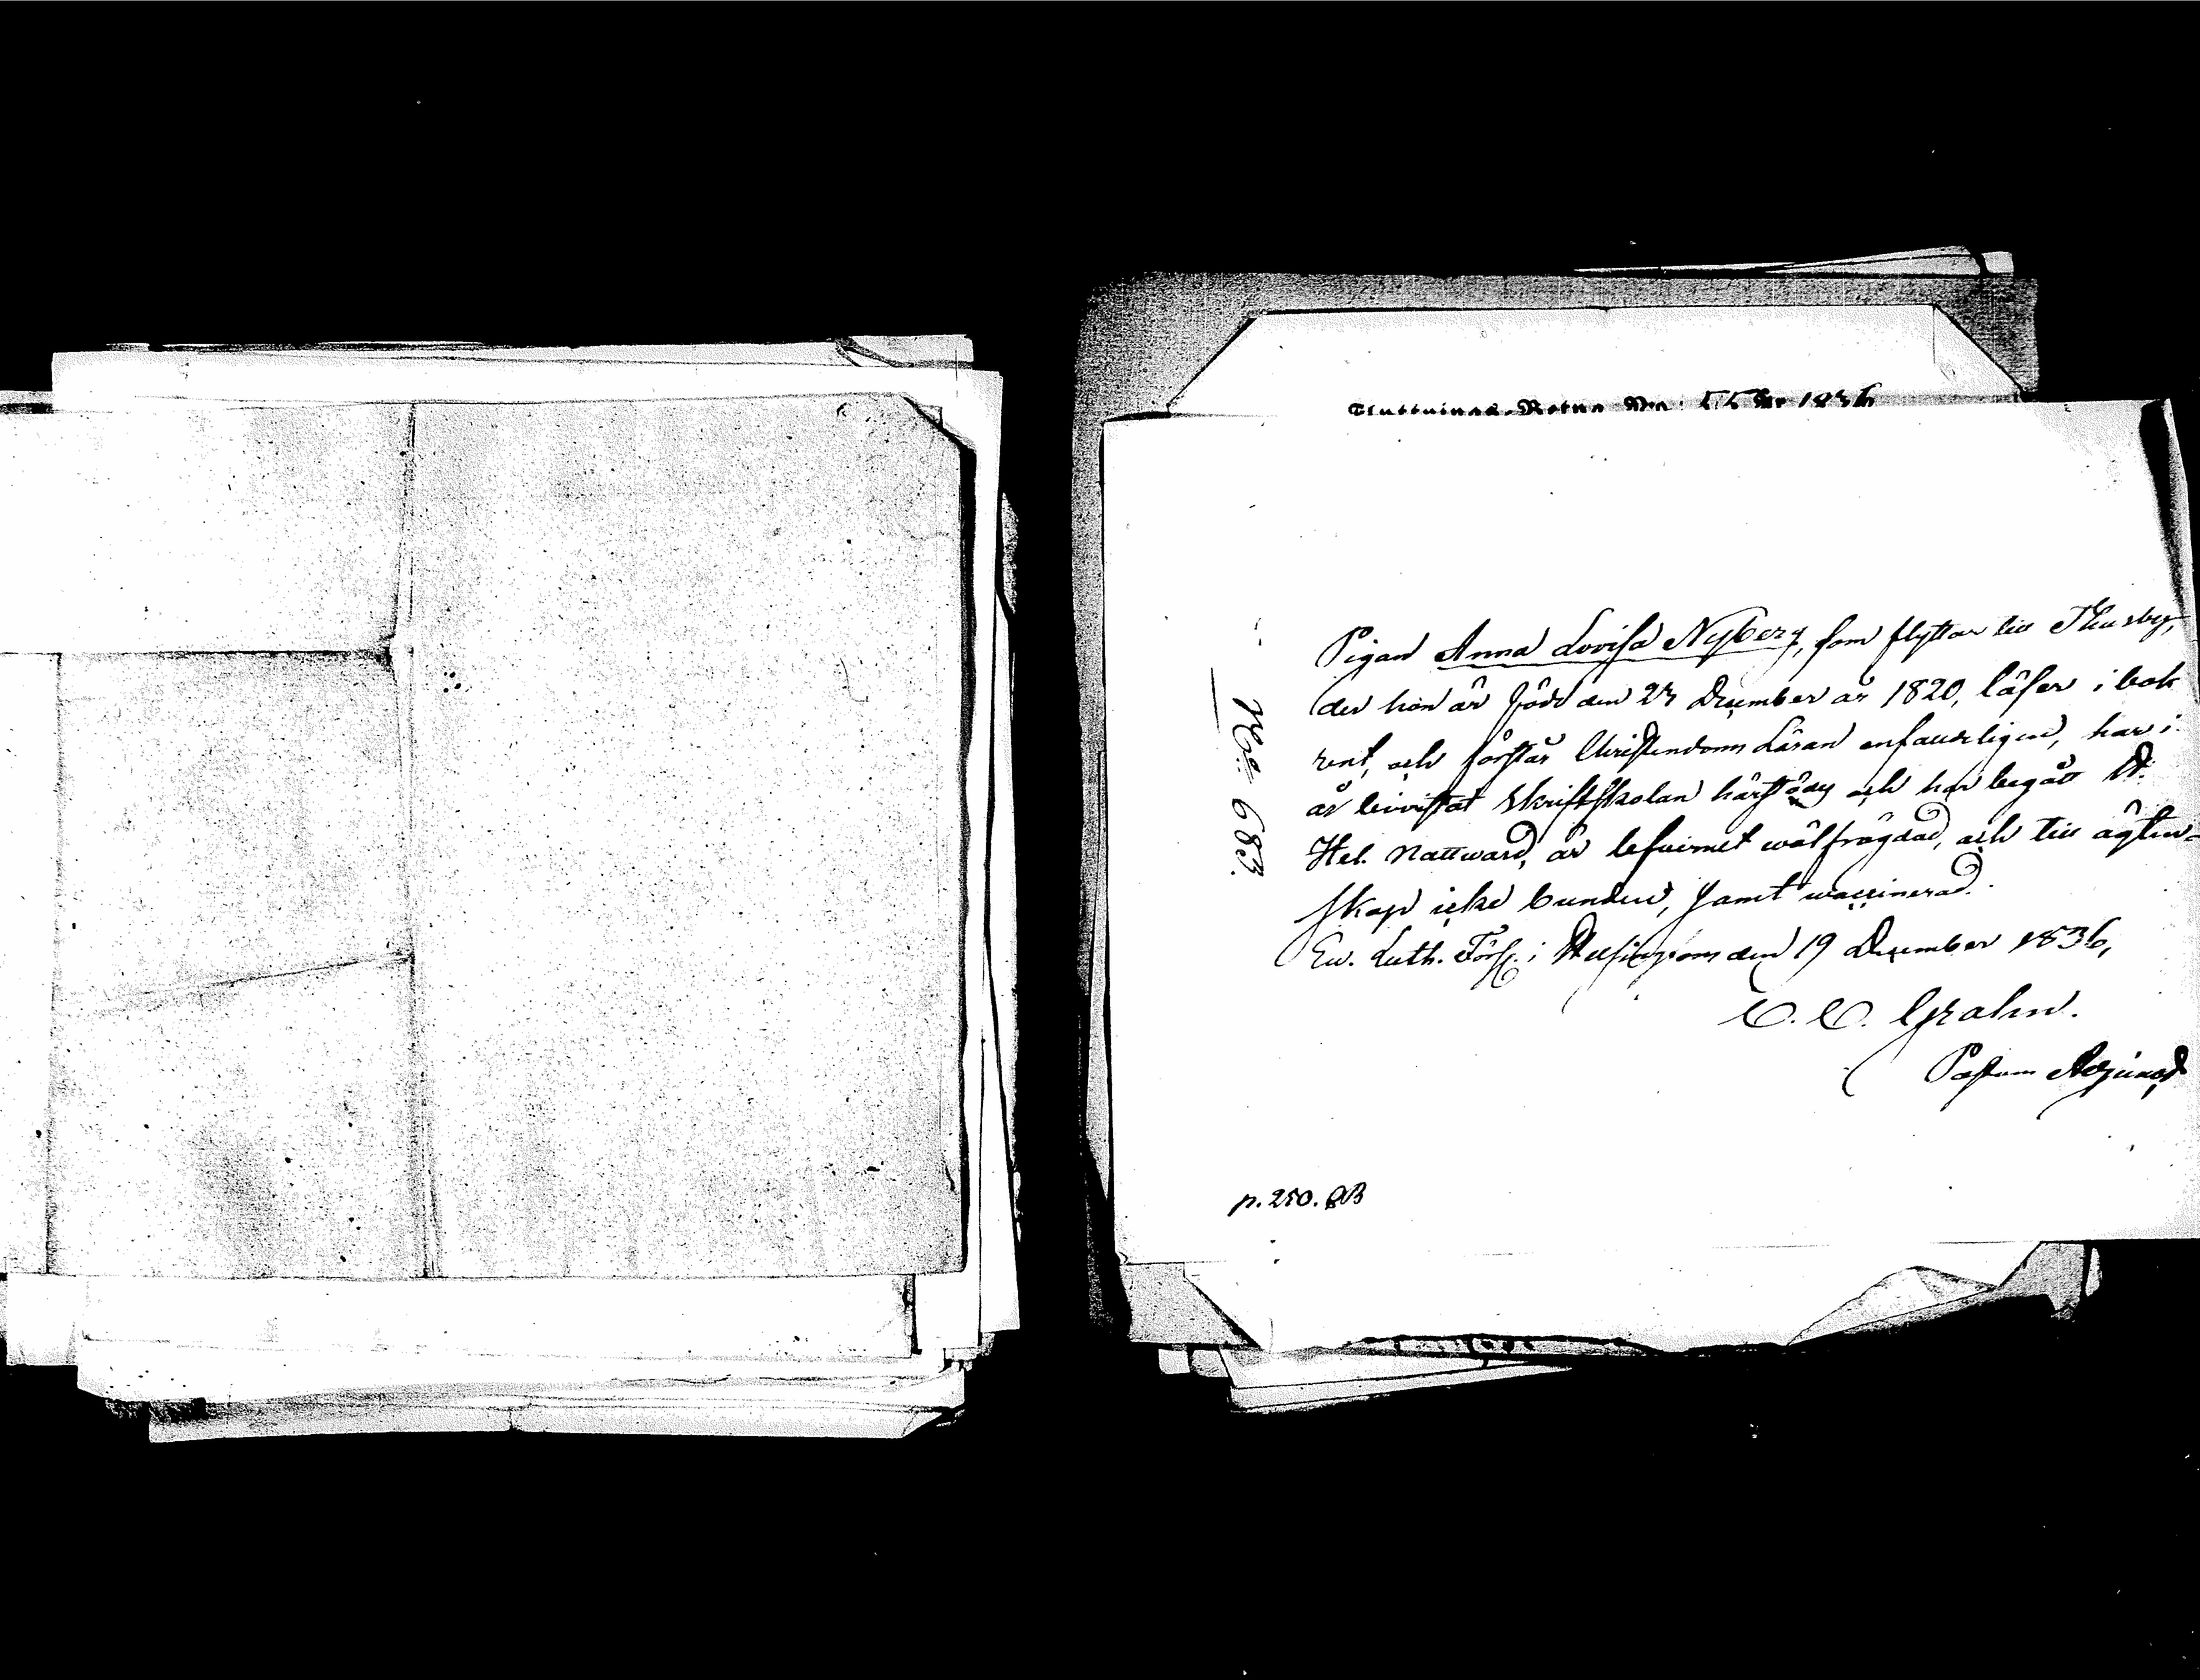 Flyttnings-Betyg No: 55 År 1836
Pigan Anna Lovisa Nyberg, som flyttar till Thusby,
der hon är född den 27 December år 1820, läser i bok
rent, och förstår Christendoms Läran enfaldeligen, har i
år bivistat Skriftskolan härstädes och har begått D.
Hel. Nattward, är lefvernet wälfrägdad, och till ägten-
skap icke bunden, samt waccinerad.
Ew. Luth. Förs. i Helsingfors den 19 December 1836,
C. C. Grahn.
Pastors Adjunct
No 683.
p. 250.